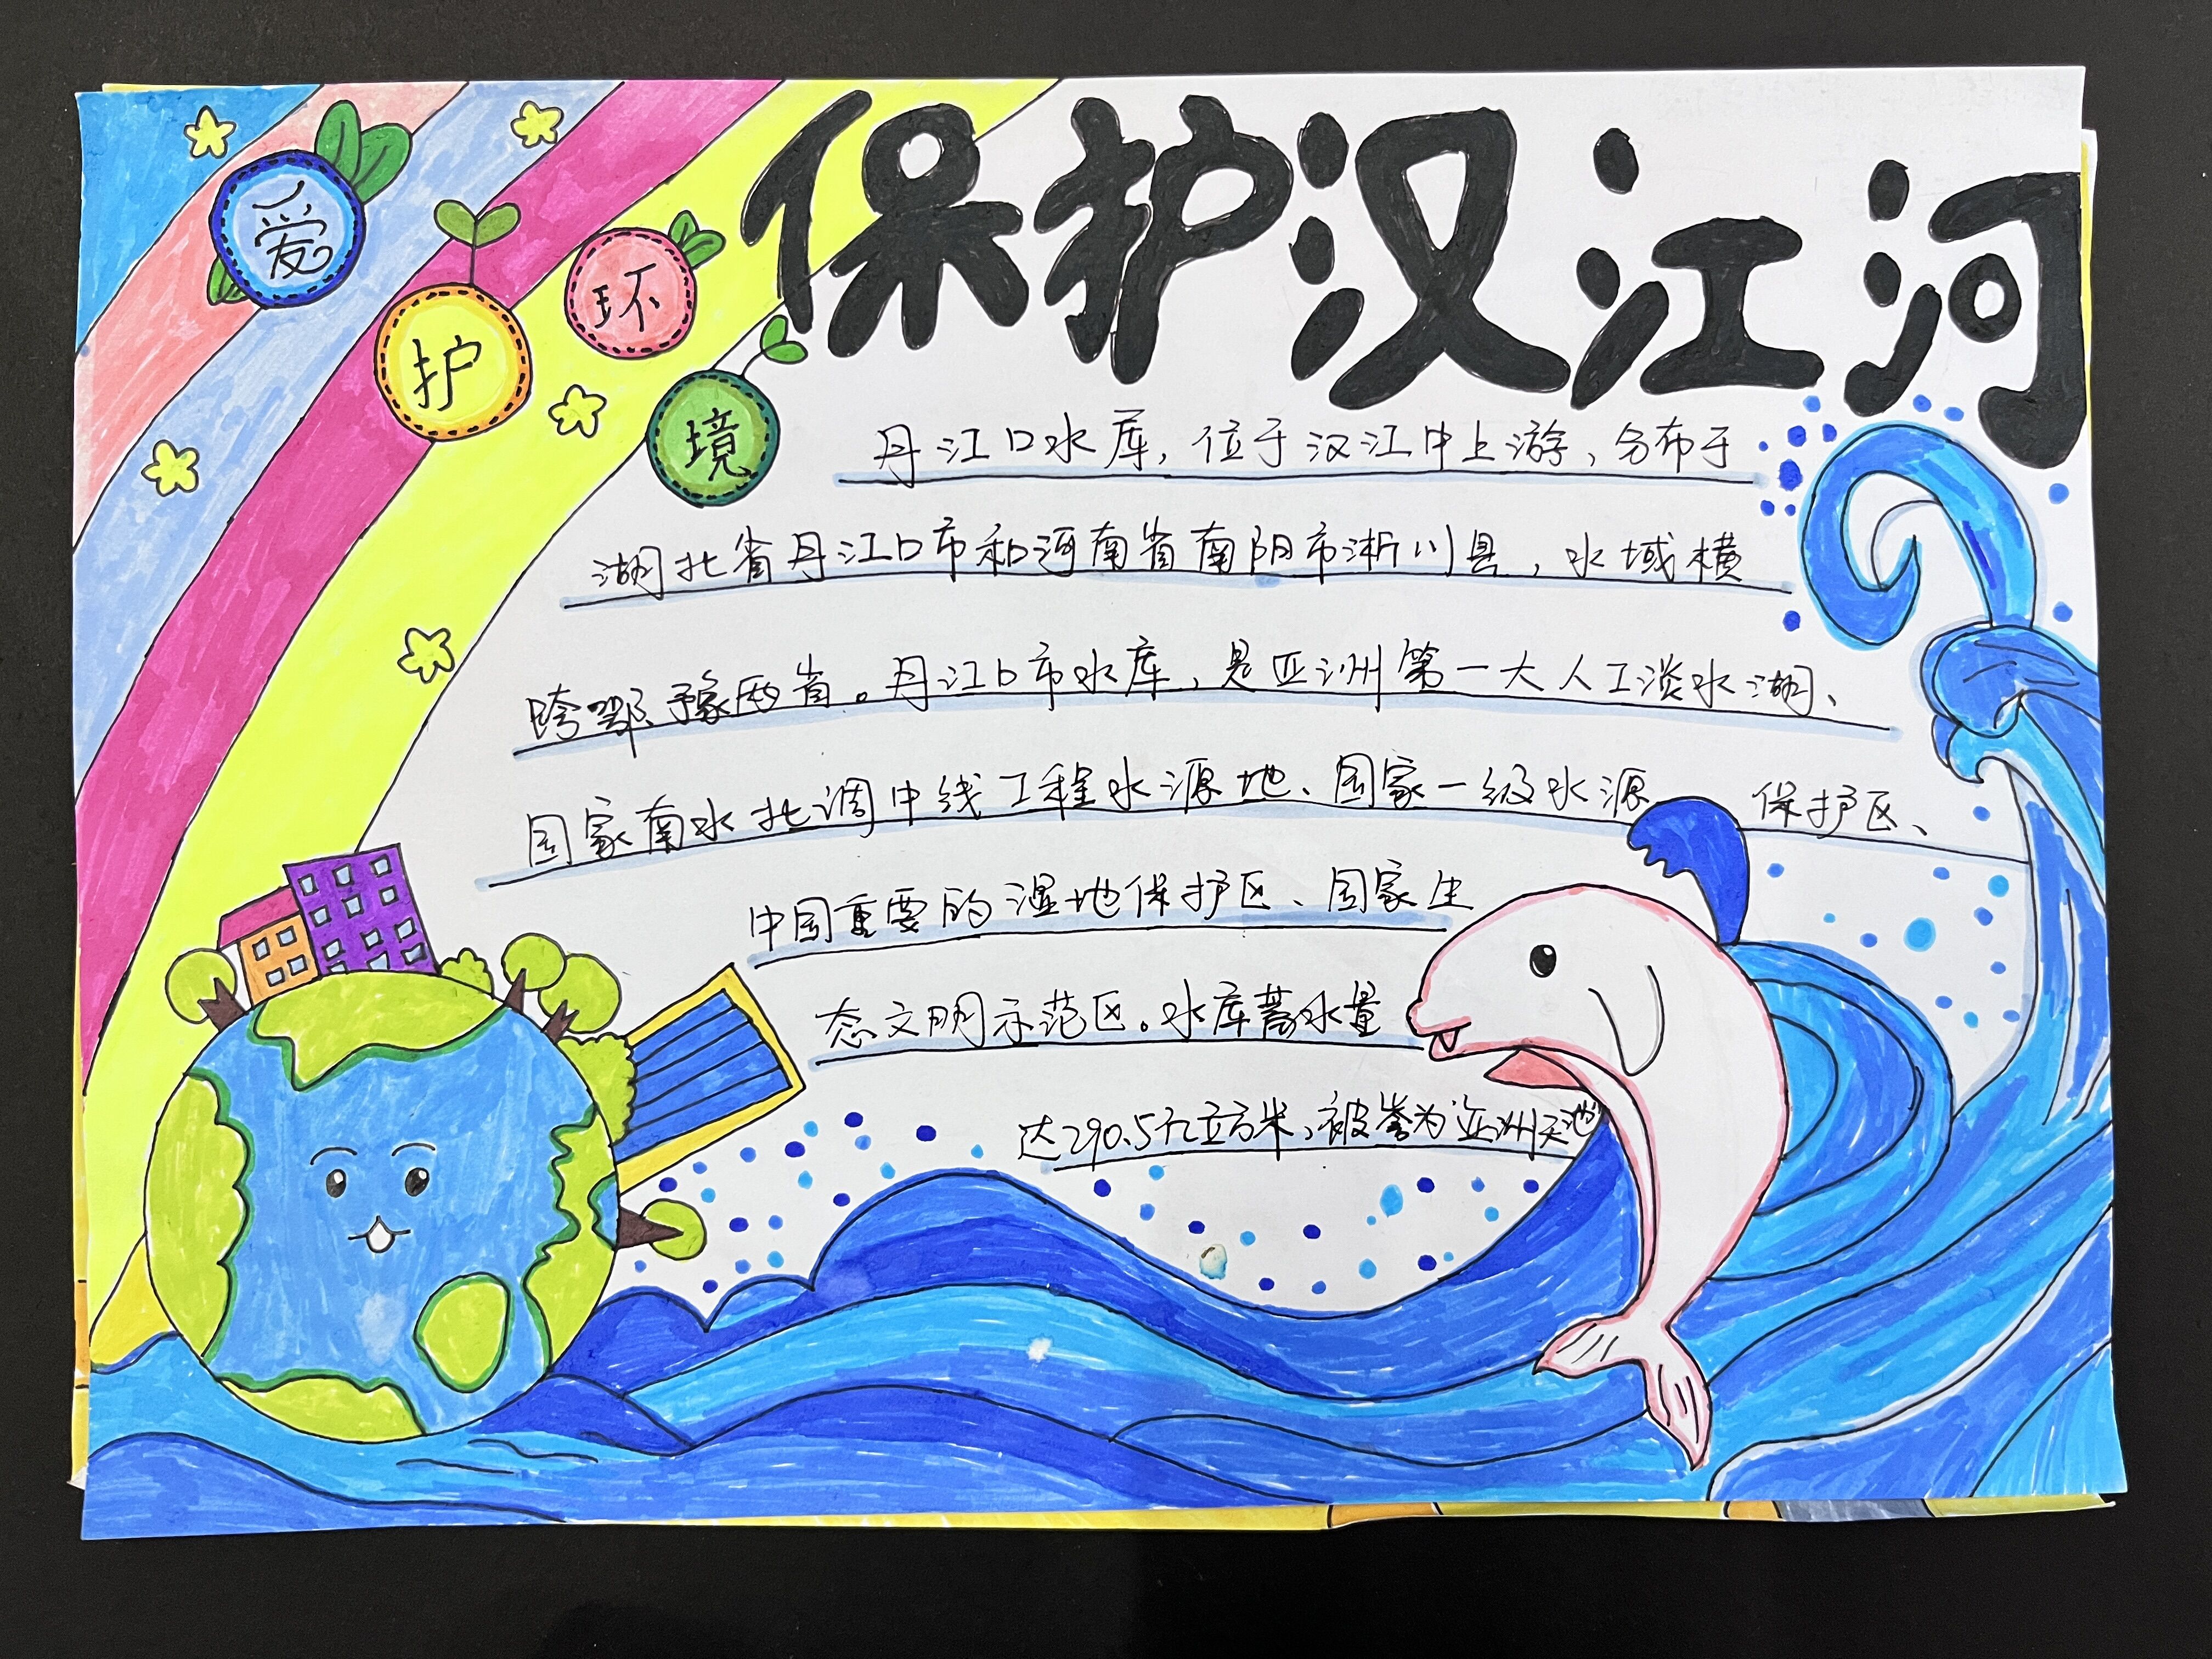 保护汉江河
爱护环境
丹江口水库，位于汉江中上游，分布于
湖北省丹江口市和河南省南阳市淅川县，水域横
跨鄂豫两省。丹江口市水库，是亚洲第一大人工淡水湖、
国家南水北调中线工程水源地、国家一级水源保护区、
中国重要的湿地保护区、国家生
态文明示范区。水库蓄水量
达290.5亿立方米，被誉为“亚洲天池”